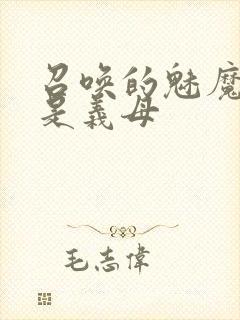 召唤的魅魔
是義母
毛志偉